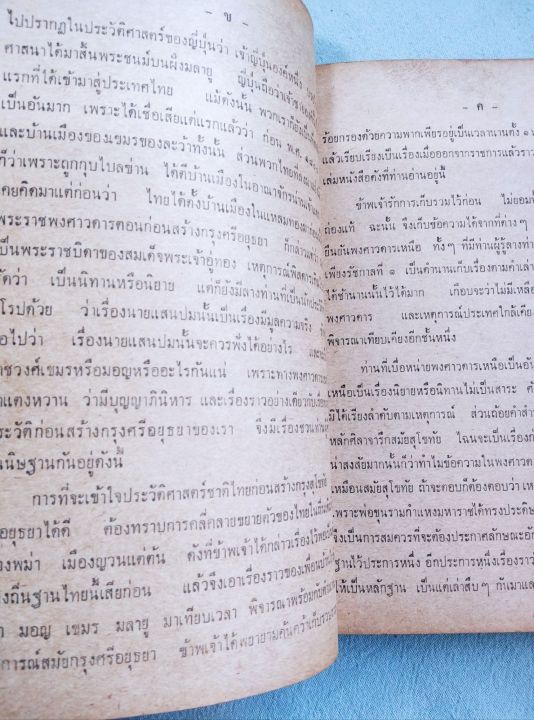 - ข -
ไปปรากฏในประวัติศาสตร์ของญี่ปุ่นว่า เจ้าญี่ปุ่นองค์หนึ่ง
ศาสนาได้มาสิ้นพระชนม์บนผืนมลายู ญี่ปุ่นถือว่าเจ้า
แรกที่ได้เข้ามาสู่ประเทศไทย แม้ดังนั้น พวกเราก็ยัง
เป็นอันมาก เพราะได้เชื่อเสียแต่แรกแล้วว่า ก่อน พ.ศ.
และบ้านเมืองของเขมรของละว้าทั้งนั้น ส่วนพวกไทย
ก็ว่าเพราะถูกกุบไบลข่าน ได้ตีบ้านเมืองในอาณาจักรน่านเจ้า
คยคิดมาแต่ก่อนว่า ไทยได้ตั้งบ้านเมืองในแหลมทอง
พระราชพงศาวดารตอนก่อนสร้างกรุงศรีอยุธยา ก็กล่าว
เป็นพระราชบิดาของสมเด็จพระเจ้าอู่ทอง เหตุการณ์
ดว่า เป็นนิทานหรือนิยาย แต่ก็ยังมีลางท่านที่เป็นนัก
โรปด้วย ว่าเรื่องนายแสนปมนั้นเป็นเรื่องมีมูลความจริง
อไปว่า เรื่องนายแสนปมนั้นจะควรฟังได้อย่างไร
ชวงศ์เขมรหรือมอญหรืออะไรกันแน่ เพราะทางพงศาวดาร
าแตงหวาน ว่ามีบุญญาภินิหาร และเรื่องราวอย่างเดียวกับ
ระวัติก่อนสร้างกรุงศรีอยุธยาของเรา จึงมีเรื่องชวน
นนิษฐานกันอยู่ดังนี้
การที่จะเข้าใจประวัติศาสตร์ชาติไทยก่อนสร้างกรุงสุโขทัย
อยุธยาได้ดี ต้องทราบการคลี่คลายขยายตัวของไทยในถิ่น
องพม่า เมืองญวนแต่ต้น ดังที่ข้าพเจ้าได้กล่าวเรื่องไว้
งถิ่นฐานไทยนี้เสียก่อน แล้วจึงเอาเรื่องราวของเพื่อนบ้าน
า มอญ เขมร มลายู มาเทียบเวลา พิจารณาพร้อมกับ
การณ์สมัยกรุงศรีอยุธยา ข้าพเจ้าได้พยายามค้นคว้าเก็บรวบรวม
- ค -
ร้อยกรองด้วยความพากเพียรอยู่เป็นเวลานานตั้ง ๑
แล้วเรียบเรียงเป็นเรื่องเมื่อออกจากราชการแล้วราว
เล่มหนังสือดังที่ท่านอ่านอยู่นี้
ข้าพเจ้ารักการเก็บรวมไว้ก่อน ไม่ยอม
ถ่องแท้ ฉะนั้น จึงเก็บข้อความได้จากที่ต่างๆ
ยืนยันพงศาวดารเหนือ ทั้งๆ ที่มีท่านผู้รู้ลางท่าน
เพียงรัชกาลที่ ๑ เป็นตำนานเก็บเรื่องตามคำเล่า
ได้ชำนานนั้นไว้ได้มาก เกือบจะว่าไม่มีเหลือ
พงศาวดาร และเหตุการณ์ประเทศใกล้เคียง
พิจารณาเทียบเคียงอีกชั้นหนึ่ง
ท่านที่เบื่อหน่ายพงศาวดารเหนือเป็นอัน
เหนือเป็นเรื่องนิยายหรือนิทานไม่เป็นสาระ
มิได้เรียงลำดับตามเหตุการณ์ ส่วนถ้อยคำสำ
หลักศิลาจารึกสมัยสุโขทัย ไฉนจะเป็นเรื่อง
น่าสงสัยมากนั้นก็ว่าทำไมข้อความในพงศาวด
เหมือนสมัยสุโขทัย ถ้าจะตอบก็ต้องตอบว่า
เพราะพ่อขุนรามกำแหงมหาราชได้ทรงประดิษ
จึงเป็นการสมควรที่จะต้องประกาศลักษณะอัก
ฐานไว้ประการหนึ่ง อีกประการหนึ่งเรื่องราว
ให้เป็นหลักฐาน เป็นแต่เล่าสืบๆ กันมาแล